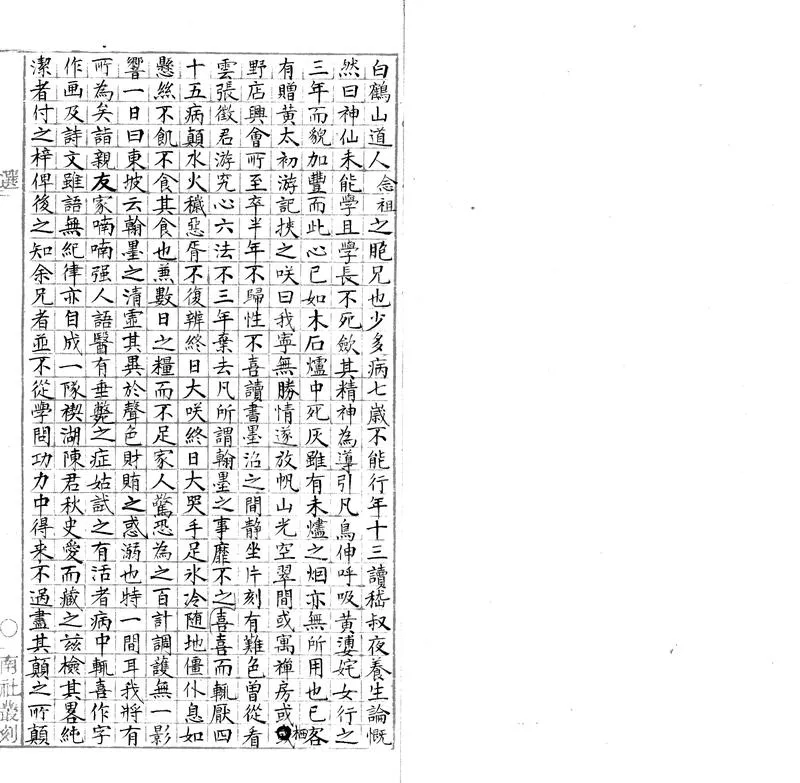 白鶴山道人念祖之胞兄也少多病七歲不能行年十三讀嵇叔夜養生論慨
然曰神仙未能學且學長不死斂其精神為導引凡鳥伸呼吸黃婆姹女行之
三年而貌加豐而此心已如木石爐中死灰雖有未燼之烟亦無所用也已客
有贈黃太初游記挾之咲曰我寧無勝情遂放帆山光空翠間或寓禪房或栖
野店興會所至卒半年不歸性不喜讀書墨沿之間静坐片刻有難色曾從看
雲張徵君游究心六法不三年棄去凡所謂翰墨之事靡不之喜喜而輒厭四
十五病顛水火穢惡胥不復辨終日大咲終日大哭手足冰冷随地僵仆息如
懸絲不飢不食其食也兼數日之糧而不足家人驚恐為之百計調護無一影
響一日曰東坡云翰墨之清虛其異於聲色財賄之惑溺也特一間耳我將有
所為矣詣親友家喃喃强人語醫有垂斃之症姑試之有活者病中輒喜作字
作画及詩文雖語無紀律亦自成一隊禊湖陳君秋史愛而藏之玆檢其畧純
潔者付之梓俾後之知余兄者並不從學問功力中得来不過盡其顛之所顛
選
南社叢刻